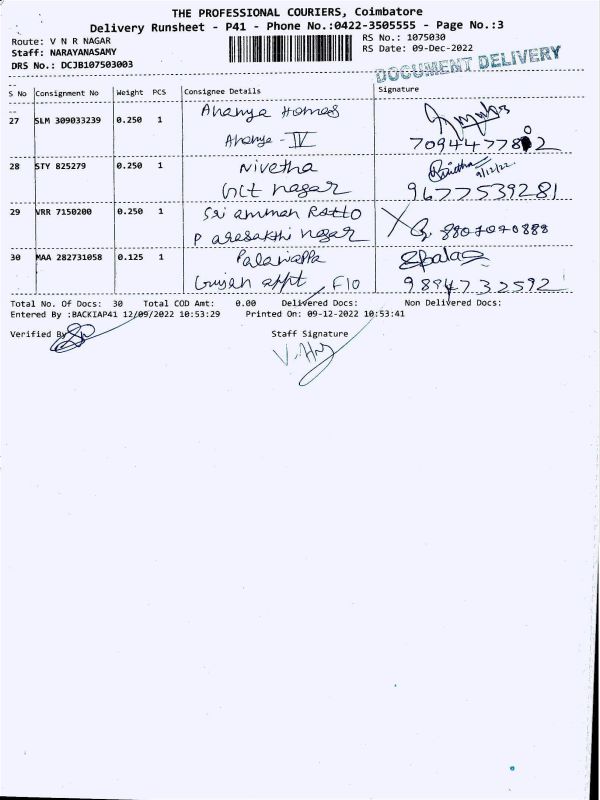 THE PROFESSIONAL COURIERS, Coimbatore
Delivery Runsheet - P41 - Phone No.:0422-3505555 - Page No.:3
Route: V N R NAGAR
Staff: NARAYANASAMY
DRS No.: DCJB107503003
RS No.: 1075030
RS Date: 09-Dec-2022
DOCUMENT DELIVERY
S No Consignment No Weight PCS Consignee Details Signature
27 SLM 309033239 0.250 1 Ananya Homes
Ananya - IV
28 STY 825279 0.250 1 Nivetha
nagar 9677539281
9/12/22
29 VRR 7150200 0.250 1 Sri amman
nagar
30 MAA 282731058 0.125 1 Palaniappa
appt F10 9894732592
Total No. Of Docs: 30 Total COD Amt: 0.00 Delivered Docs: Non Delivered Docs:
Entered By :BACKIAP41 12/09/2022 10:53:29 Printed On: 09-12-2022 10:53:41
Verified By
Staff Signature